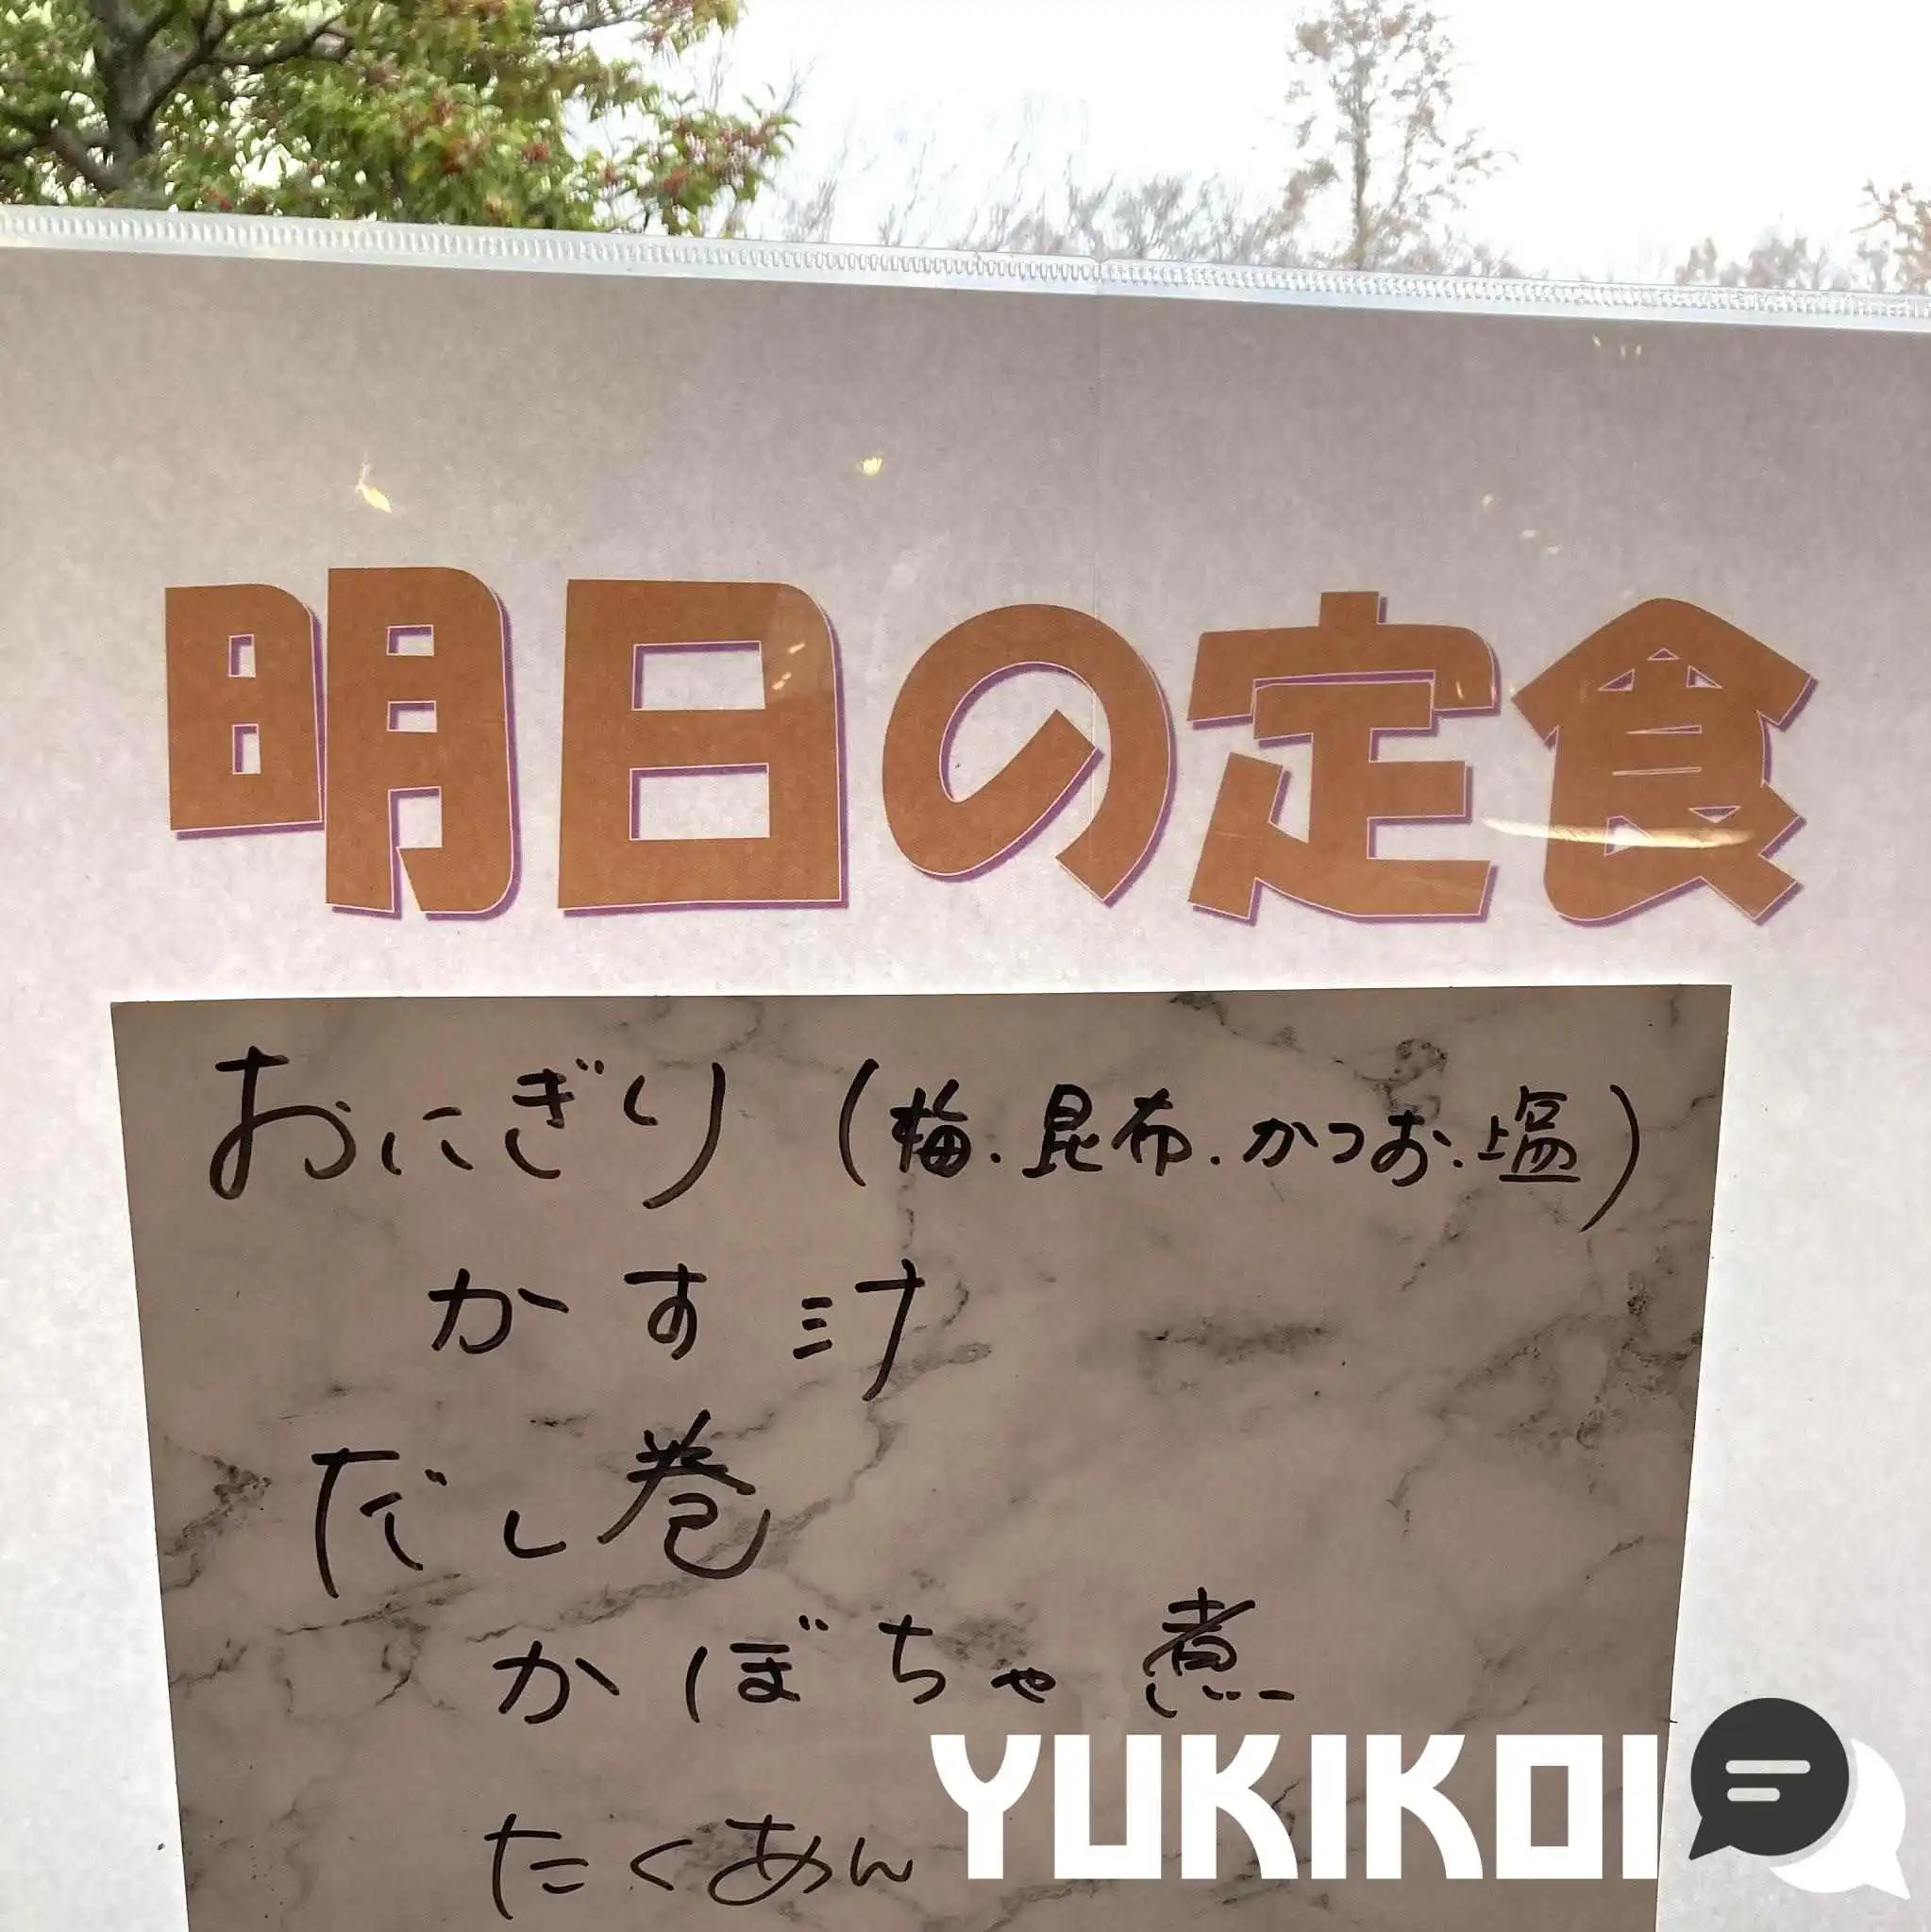 明日の定食
おにぎり (梅.昆布.かつお.塩)
かす汁
だし巻
かぼちゃ煮
たくあん
YUKIKOI